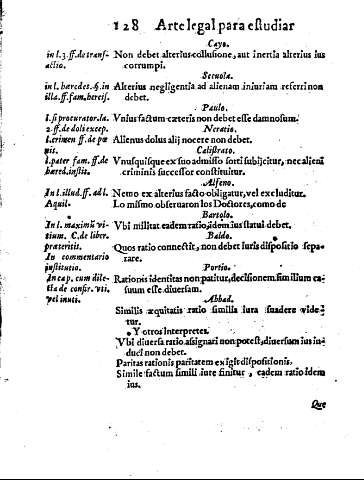 128 Arte legal para estudiar
Cayo.
in l. 3. ff. de transactio.
Non debet alterius collusione, aut inertia alterius ius
corrumpi.
Scevola.
in l. haeredes. §. in
illa. ff. fam. hercis.
Alterius negligentia ad alienam iniuriam referri non
debet.
Paulo.
l. si procurator. la
2. ff. de doli excep.
Vnius factum caeteris non debet esse damnosum.
Neratio.
l. crimen ff. de pœ
nis.
Alienus dolus alij nocere non debet.
Calistrato.
l. pater fam. ff. de
haered. instit.
Vnusquisque ex suo admisso sorti subijcitur, nec alieni
criminis successor constituitur.
Alfeno.
In l. illud. ff. ad l.
Aquil.
Nemo ex alterius facto obligatur, vel excluditur.
Lo mismo observaron los Doctores, como de
Bartolo.
In l. maximũ vi-
tium. C. de liber.
praeteritis.
Vbi militat eadem ratio, idem ius statui debet.
Baldo.
Quos ratio connectit, non debet iuris dispositio sepa-
rare.
In commentario
institutio.
Portio.
In cap. cum dile-
cta de confir. vti.
vel inuti.
Rationis identitas non patitur, decisionem similium ca-
suum esse diuersam.
Abbad.
Similis æquitatis ratio similia iura suadere vide-
tur.
Y otros Interpretes.
Vbi diuersa ratio assignari non potest, diuersum ius in
duci non debet.
Paritas rationis paritatem exigit dispositionis.
Simile factum simili iure finitur, eadem ratio idem
ius.
Que